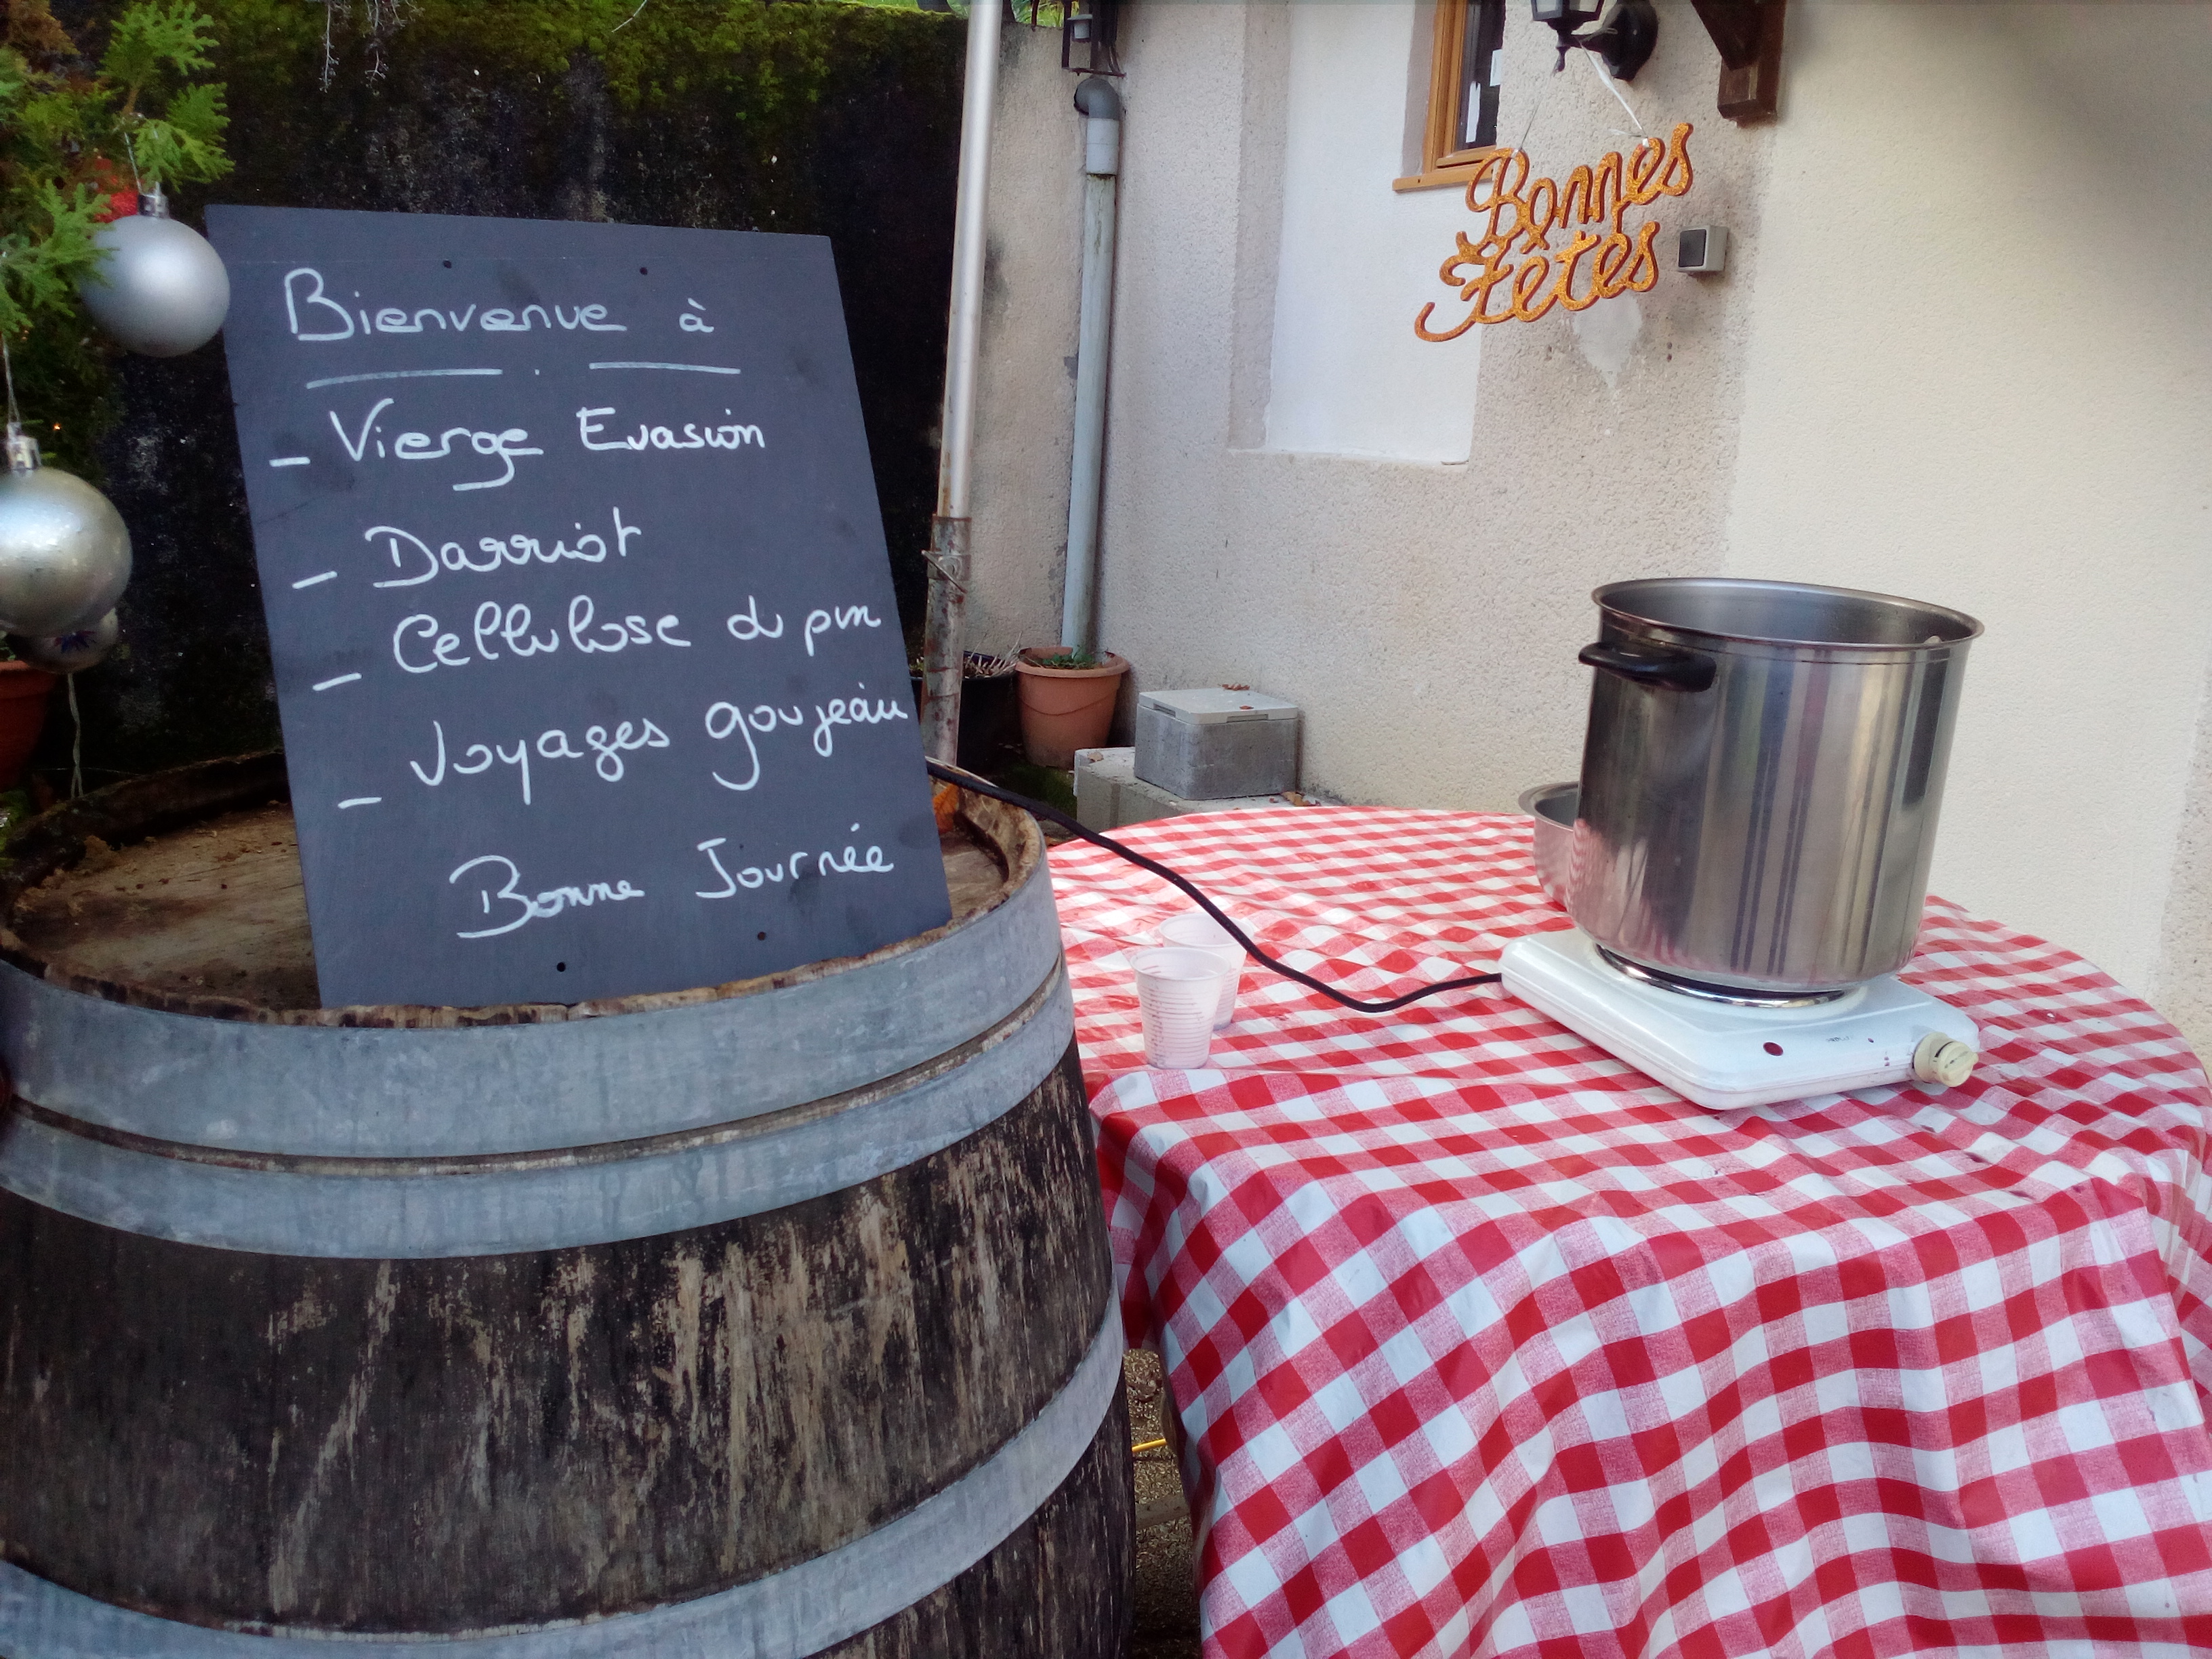 Bienvenue à
- Vierge Evasion
- Darriot
- Cellulose du pin
- Voyages goujeau
Bonne Journée
Bonnes
Fêtes